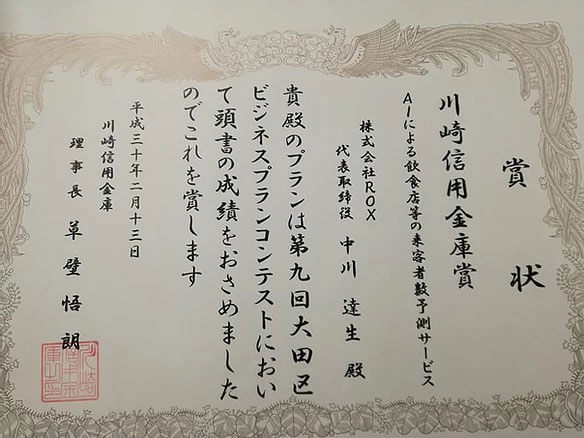 賞状
川崎信用金庫賞
AIによる飲食店等の来客者数予測サービス
株式会社ROX
代表取締役 中川達生殿
貴殿のプランは第九回大田区
ビジネスプランコンテストにおい
て頭書の成績をおさめました
のでこれを賞します
平成三十年二月十三日
川崎信用金庫
理事長 草壁悟朗